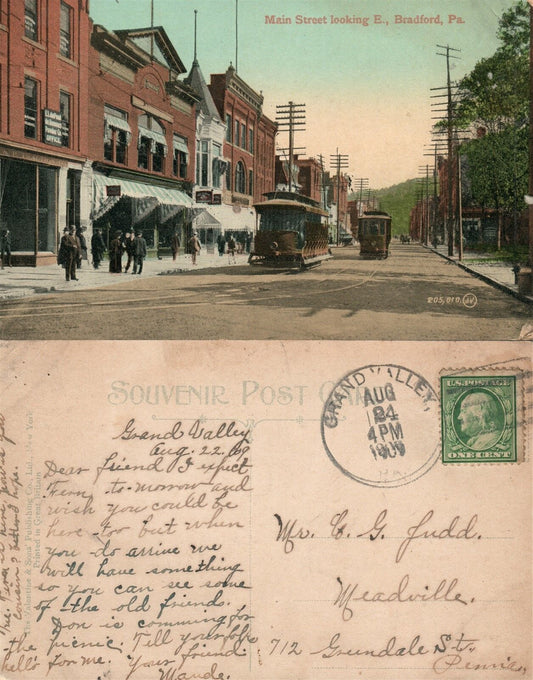 Main Street looking E., Bradford, Pa.
205,010. JV
SOUVENIR POST CARD
GRAND VALLEY,
AUG
24
4PM
1909
PA.
U.S. POSTAGE
ONE CENT
Printed in Great Britain
Grand Valley
Aug. 22, 09
Dear friend I expect
Fern to-morrow and
wish you could be
here too but when
you do arrive we
will have something
so you can see some
of the old friends.
Don is comming for
the picnic. Tell your folks
hello for me. Your friend
Maude.
Mr. C. G. Judd.
Meadville.
712 Greendale St.
Penna